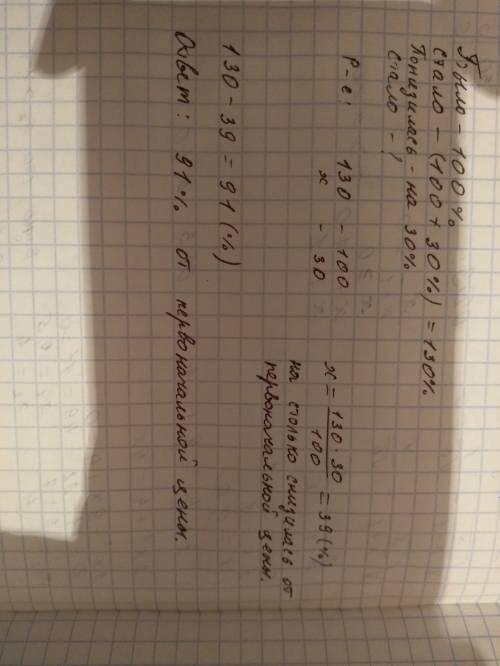 Было - 100%
стало - (100 + 30%) = 130%
Понизилась - на 30%
стало - ?
Р-е: 130 - 100
х - 30
х = 130 · 30 / 100 = 39 (%)
на столько снизилась от
первоначальной цены.
130 - 39 = 91 (%)
Ответ: 91% от первоначальной цены.